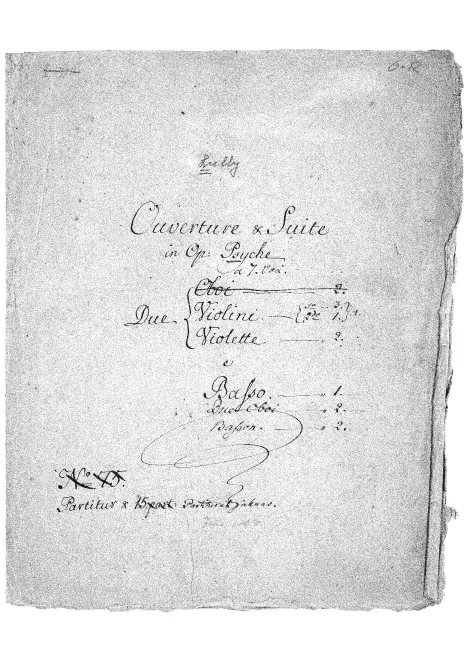 Lully
Ouverture & Suite
in Op: Psyche
à 7. Voc.
Oboi 2.
Due Violini
Violette 2.
e
Basso. 1.
Due Oboi 2.
Basson. 2.
No
Partitur & 15 part